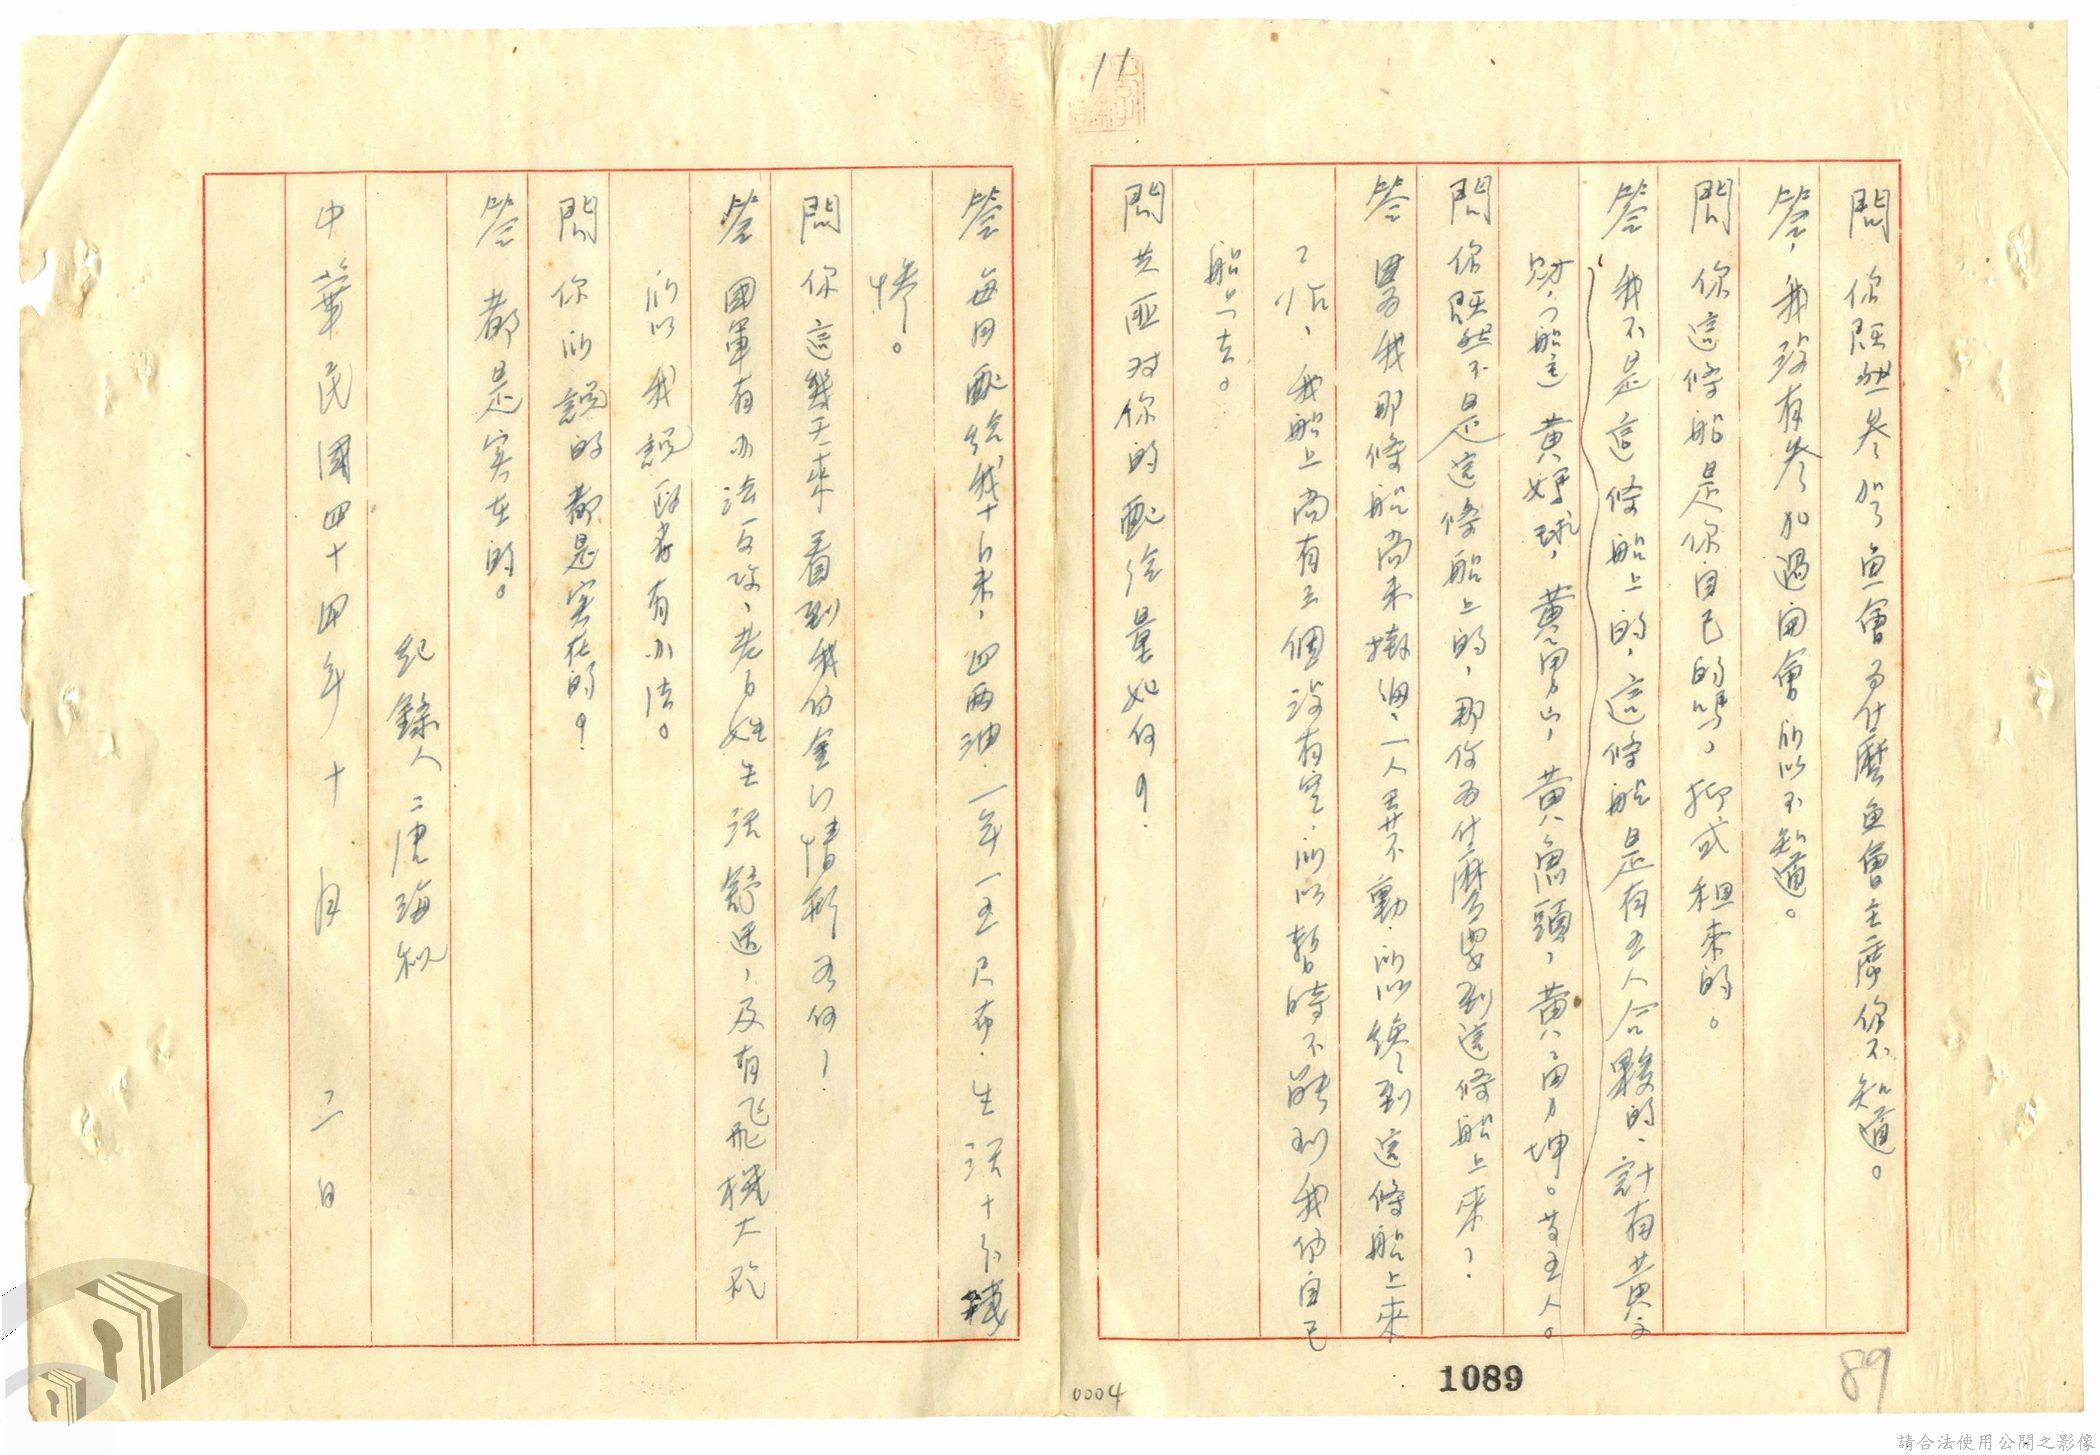 11
問 你既然參加魚會為什麼魚會主席你不知道。
答，我沒有參加過開會所以不知道。
問 你這條船是你自己的嗎，抑或租來的。
答 我不是這條船上的，這條船是有五人合夥的，計有黃文
財，（船主）黃 球，黃男山，黃魚頭，黃勇坤。等五人。
問 你既然不是這條船上的，那你為什麼要到這條船上來？
答 因為我那條船尚未撒網，一人弄不動，所以 到這條船上來
工作，我船上尚有三個沒有空，所以暫時不能到我們自己
船上去。
問 共匪对你的配給量如何？
答 每月配給我十斤米，四兩油，一年一五尺布，生活十分
慘。
問 你這幾天來看到我們金門情形如何？
答 國軍有办法反攻，老百姓生活舒適，及有飛機大砲
所以我說政府有办法。
問 你所說的都是实在的？
答 都是实在的。
紀錄人：唐海
中華民國四十四年十月二日
1089
89
0004
請合法使用公開之影像